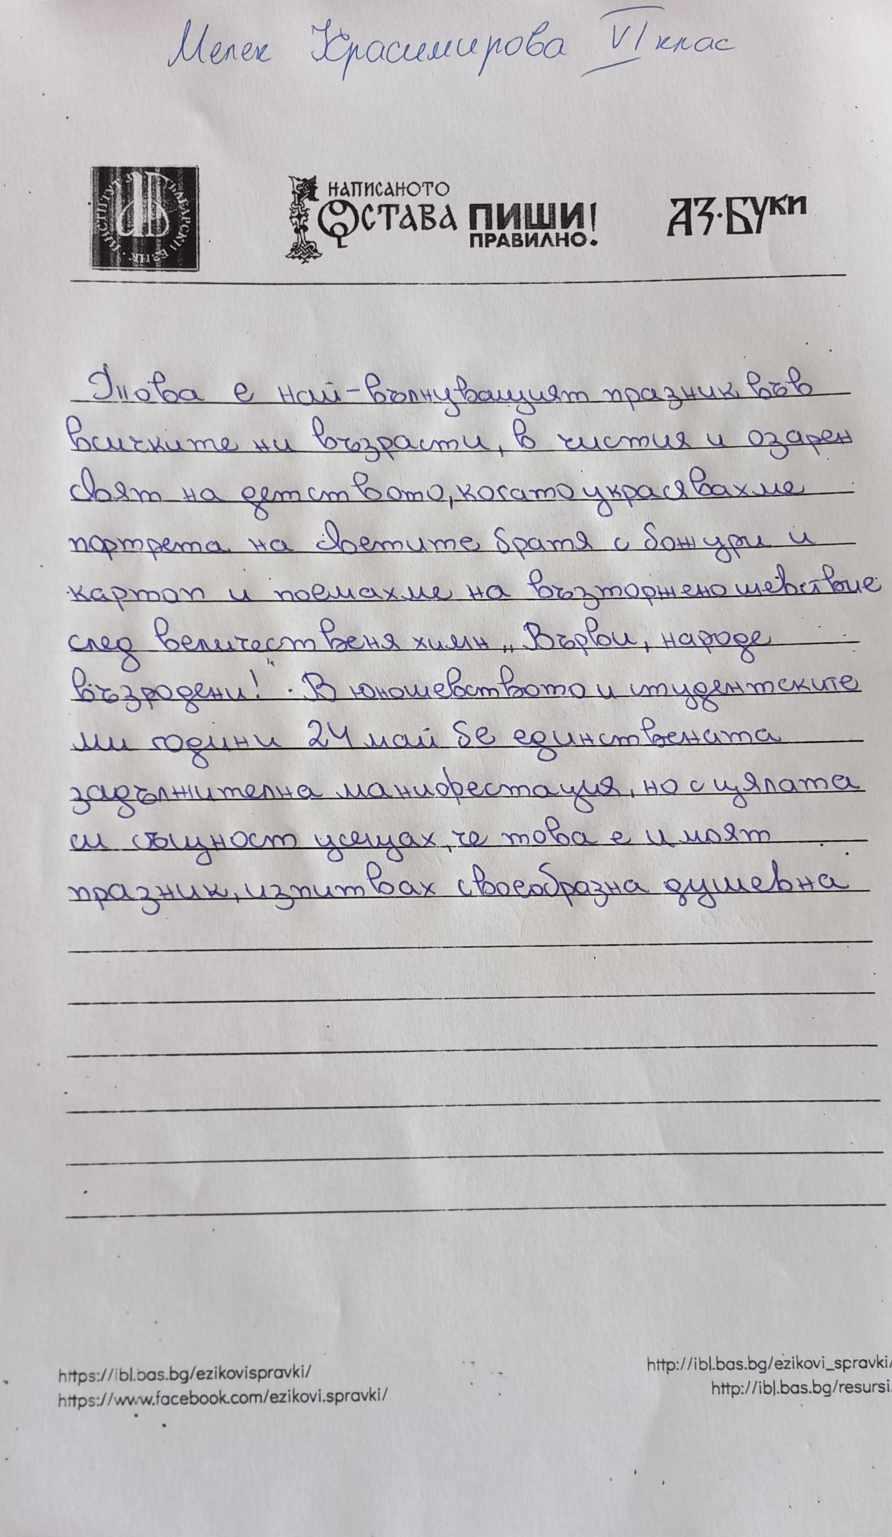 Мелек Красимирова VI клас
НАПИСАНОТО
ОСТАВА
ПИШИ!
ПРАВИЛНО.
АЗ·БУКИ
Това е най-вълнуващият празник във
всичките ни възрасти, в чистия и озарен
свят на детството, когато украсявахме
портрета на светите братя с божури и
картоп и поемахме на възторжено шевствие
след величествения химн „Върви, народе
възродени!“. В юношевството и студентските
ми години 24 май бе единствената
задължителна манифестация, но с цялата
си същност усещах, че това е и моят
празник, изпитвах своеобразна душевна
https://ibl.bas.bg/ezikovispravki/
https://www.facebook.com/ezikovi.spravki/
http://ibl.bas.bg/ezikovi_spravki/
http://ibl.bas.bg/resursi